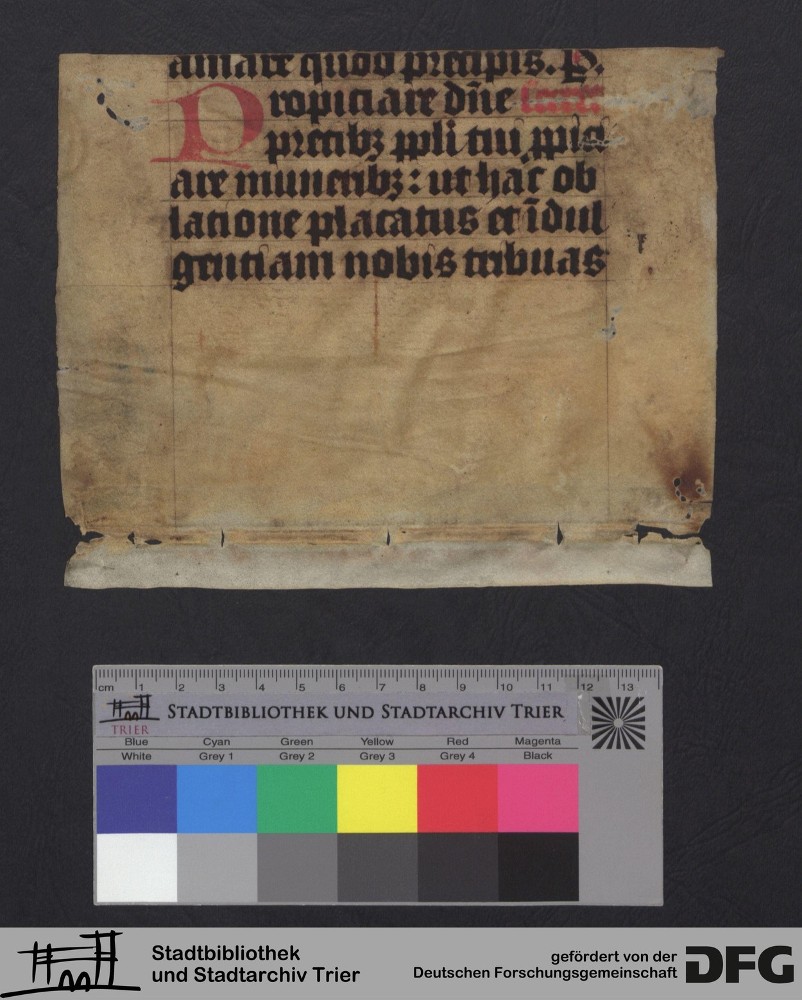 amare quod precipis. P.
Propiciare dn̄e Secreta
precibꝫ ppl̄i tui ꝓpici
are muneribꝫ: ut hac ob
latione placatus et īdul
gentiam nobis tribuas
cm 1 2 3 4 5 6 7 8 9 10 11 12 13
TRIER
STADTBIBLIOTHEK UND STADTARCHIV TRIER
Blue Cyan Green Yellow Red Magenta
White Grey 1 Grey 2 Grey 3 Grey 4 Black
Stadtbibliothek
und Stadtarchiv Trier
gefördert von der
Deutschen Forschungsgemeinschaft
DFG